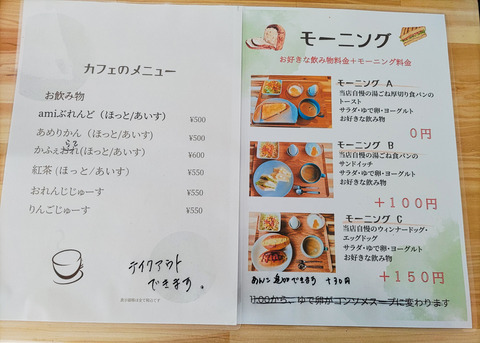 カフェのメニュー
お飲み物
amiぶれんど（ほっと/あいす） ¥500
あめりかん（ほっと/あいす） ¥500
かふぇおれ(ほっと/あいす) ¥600
紅茶（ほっと/あいす） ¥550
おれんじじゅーす ¥550
りんごじゅーす ¥550
テイクアウト
できます。
モーニング
お好きな飲み物料金＋モーニング料金
モーニング A
当店自慢の湯ごね厚切り食パンの
トースト
サラダ・ゆで卵・ヨーグルト
お好きな飲み物
0円
モーニング B
当店自慢の湯ごね食パンの
サンドイッチ
サラダ・ゆで卵・ヨーグルト
お好きな飲み物
＋100円
モーニング C
当店自慢のウィンナードッグ・
エッグドッグ
サラダ・ゆで卵・ヨーグルト
お好きな飲み物
＋150円
あんこ追加できます +30円
11:00から、ゆで卵がコンソメスープに変わります